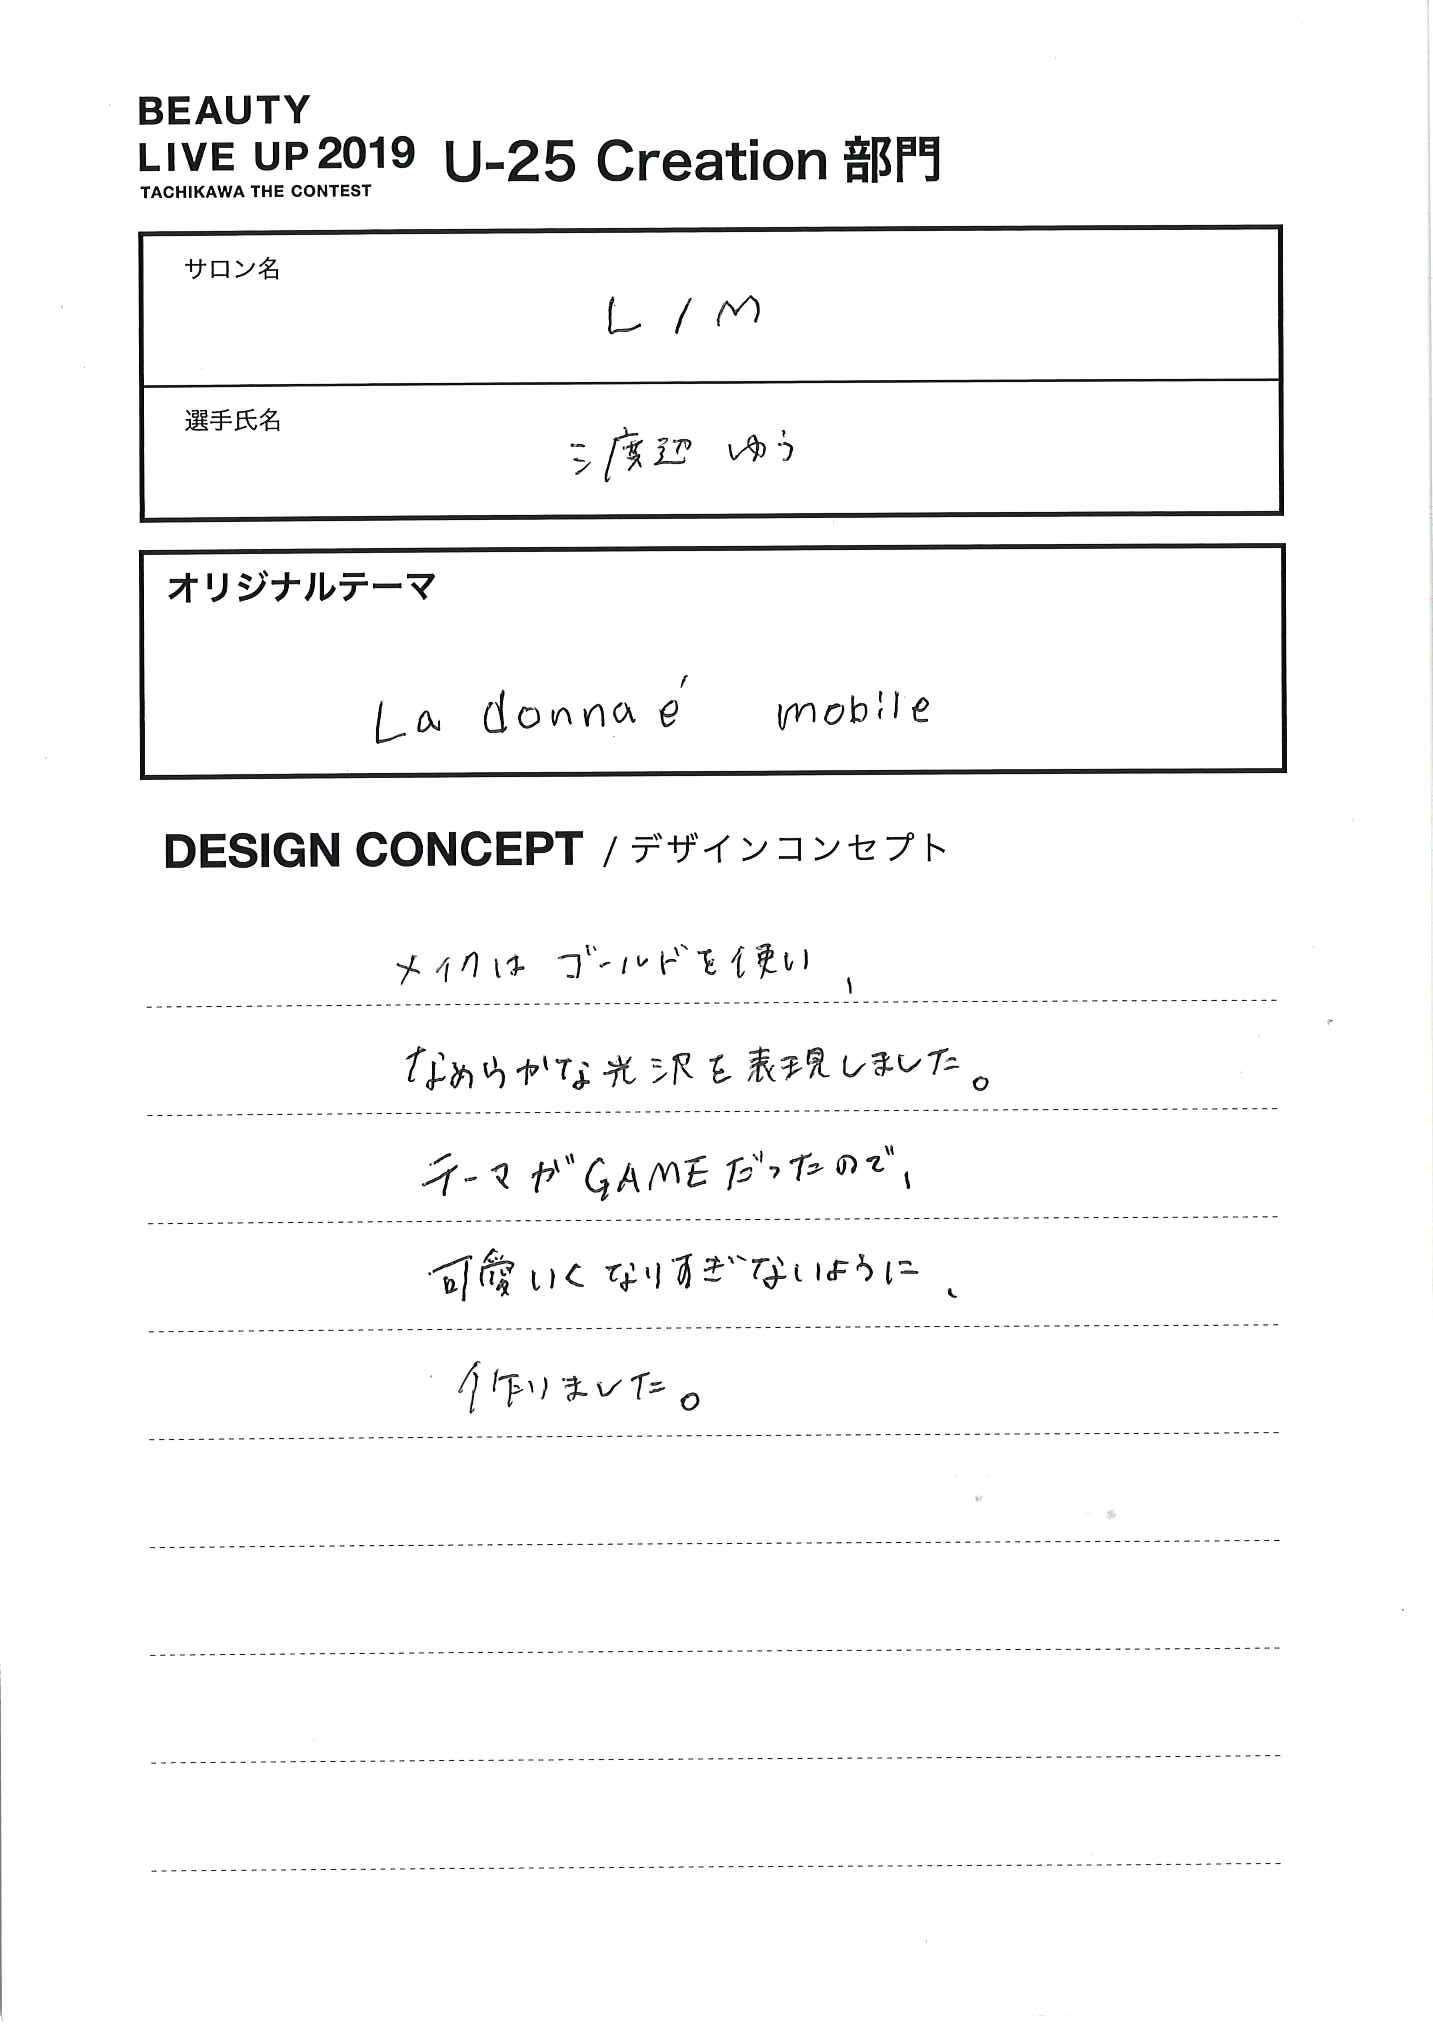 BEAUTY
LIVE UP 2019 U-25 Creation 部門
TACHIKAWA THE CONTEST
サロン名
LIM
選手氏名
渡辺 ゆう
オリジナルテーマ
La donna é mobile
DESIGN CONCEPT / デザインコンセプト
メイクは ゴールドを使い、
なめらかな光沢を表現しました。
テーマがGAMEだったので、
可愛いくなりすぎないように、
作りました。